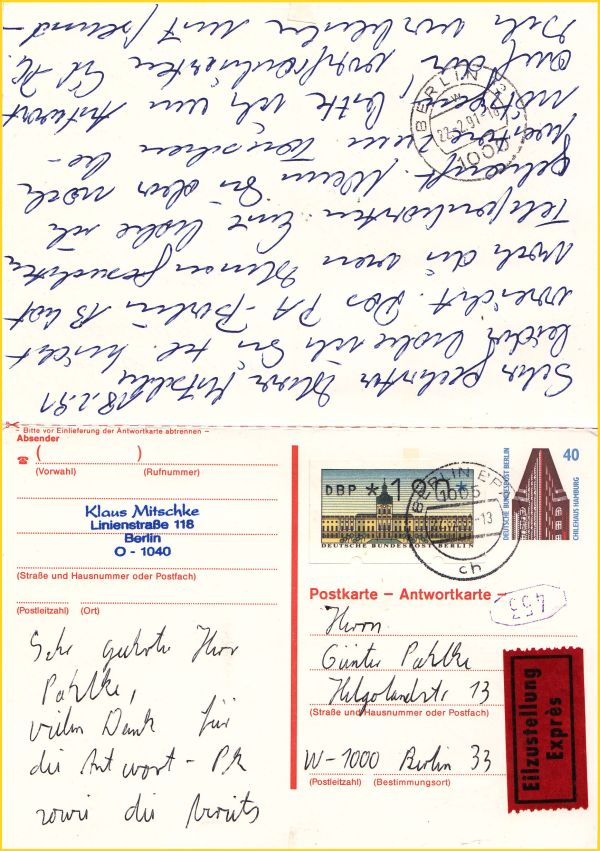 18.2.91
Sehr geehrter Herr Mitschke
leider habe ich Sie tel. nicht
erreicht. Das PA-Berlin 13 hat
noch die gesuchten
Telefonkarten. Eine habe ich
gekauft. Wenn Sie aber noch
weitere zum Tauschen be-
nötigen, bitte ich um Antwort
auf der vorfrankierten
Ich verbleibe mit freund-
BERLIN
22.-2.91-18
1000
– Bitte vor Einlieferung der Antwortkarte abtrennen –
Absender
☎ ( )
(Vorwahl) (Rufnummer)
Klaus Mitschke
Linienstraße 118
Berlin
O - 1040
(Straße und Hausnummer oder Postfach)
(Postleitzahl) (Ort)
Sehr geehrter Herr
Pahlke,
vielen Dank für
die Antwort - PK
sowie die bereits
DBP *100*
DEUTSCHE BUNDESPOST BERLIN
BERLIN
1005
-13
ch
40
DEUTSCHE BUNDESPOST BERLIN
CHILEHAUS HAMBURG
Postkarte – Antwortkarte –
453
Herrn
Günter Pahlke
Helgolandstr. 13
(Straße und Hausnummer oder Postfach)
W-1000 Berlin 33
(Postleitzahl) (Bestimmungsort)
Eilzustellung
Exprès